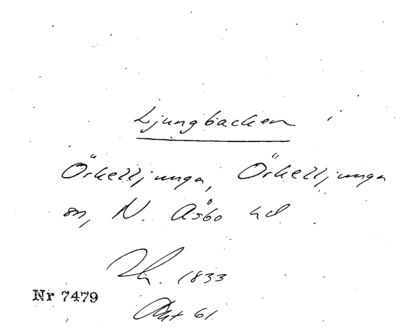 Ljungbacken
Örkelljunga, Örkelljunga
sn, N. Åsbo hd
1833
Nr 7479
61